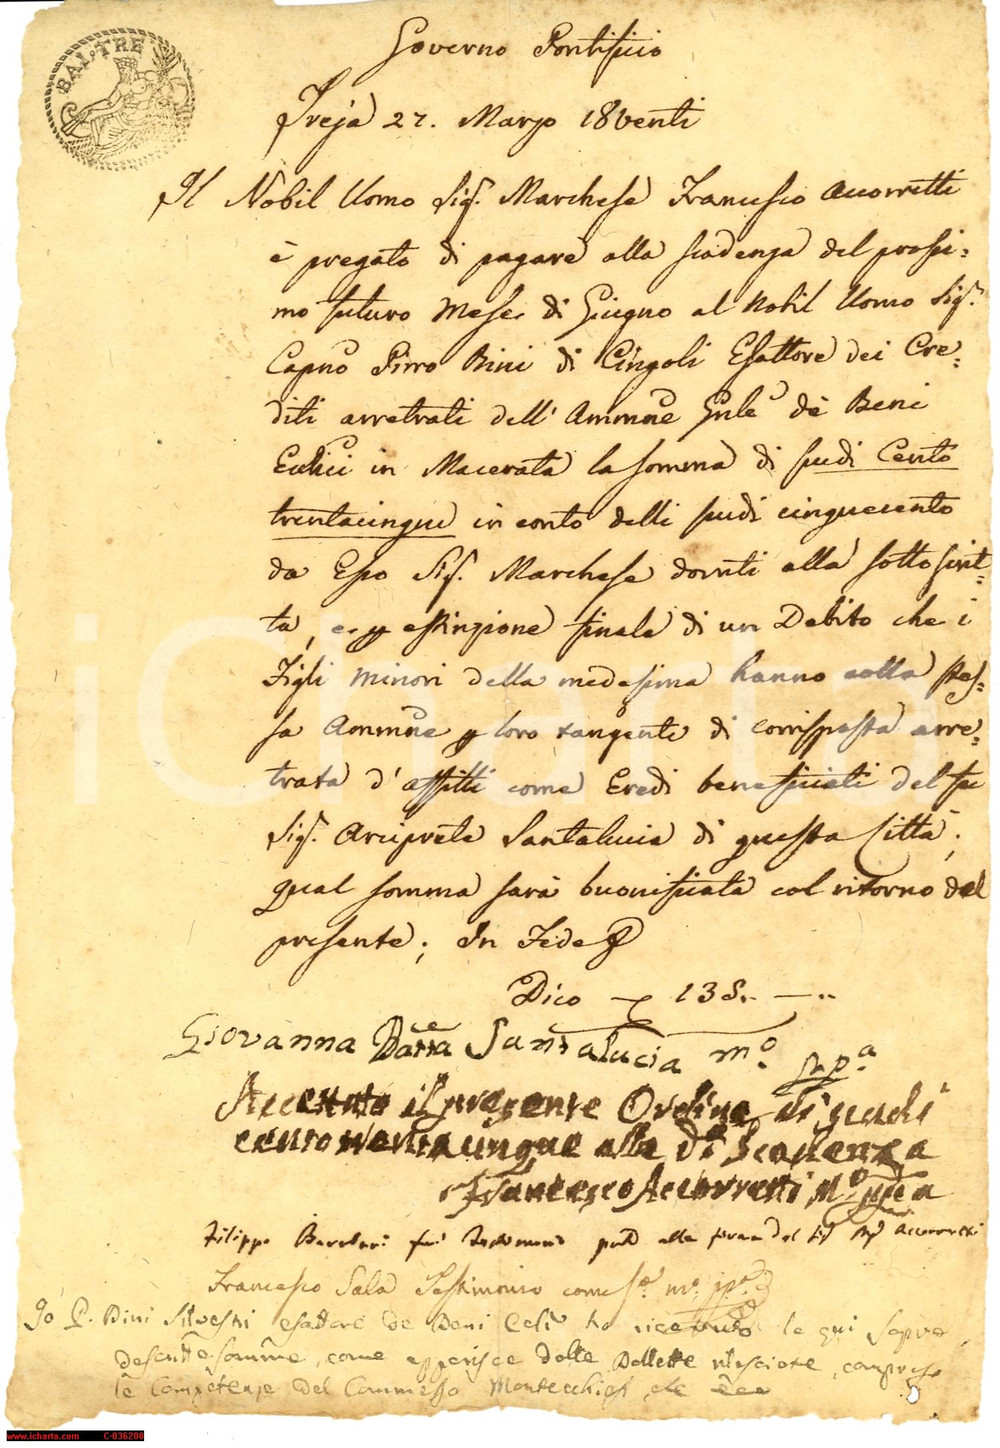 BAI. TRE
Governo Pontificio
Treja 27. Marzo 18venti
Il Nobil Uomo Sig.r Marchese Francesco Accorretti
è pregato di pagare alla scadenza del prossi=
mo futuro Mese di Giugno al Nobil Uomo Sig.r
Capno Pirro Bini di Cingoli Esattore dei Cre=
diti arretrati dell' Ammne Gnle de Beni
Eccl̃ici in Macerata la somma di scudi Cento
trentacinque in conto delli scudi cinquecento
da Esso Sig.r Marchese dovuti alla sottoscrit=
ta, e p estinzione finale di un Debito che i
Figli minori della medesima hanno colla stes=
sa Ammne p loro tangente di corrisposta arre=
trata d'affitti come Eredi beneficiati del fu
Sig.r Arciprete Santalucia di questa Città,
qual somma sarà buonificata col ritorno del
presente; In Fede
Dico 135.
Giovanna Santalucia m.o pp.a
Accettato il presente Ordine di scudi
cento trenta cinque alla d.a Scadenza
Francesco Accorretti M.o pp.a
Filippo fui Testimonio alla firma del Sig M.e Accorretti
Francesco Sala Testimonio come s.a m.o pp.a
Io P. Bini Silvestri esattore de Beni Ecli ho ricevuto le qui sopra
descritte somme, come apparisce dalle Bollette rilasciate, compreso
le Competenze del Commesso Montecchiesi
icharta
www.icharta.com C-036208